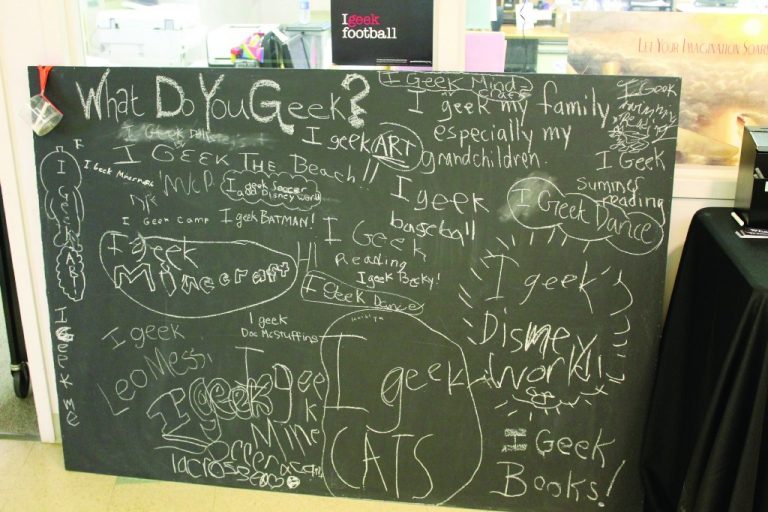 I geek
football
LET YOUR IMAGINATION SOAR
What Do You Geek?
I Geek Minds
crafts
I geek my family
especially my
grandchildren.
I Geek
I Geek
summer
reading
I Geek Dance
I geek ART
I GEEK THE Beach!!
I Geek
MVP
I geek Soccer
and Disney world
I geek
baseball
I Geek Dance
I GeeK Camp
I geek BATMAN!
I Geek ART
I geek
Minecraft
HI
I Geek
Reading
I geek Becky!
I Geek Dance
I geek
Disney
World!
I geek
Doc McStuffins
I geek
Leo Messi
I Geek me
I geek
lacrosse
I geek
Mine
I geek
CATS
I Geek
Books!